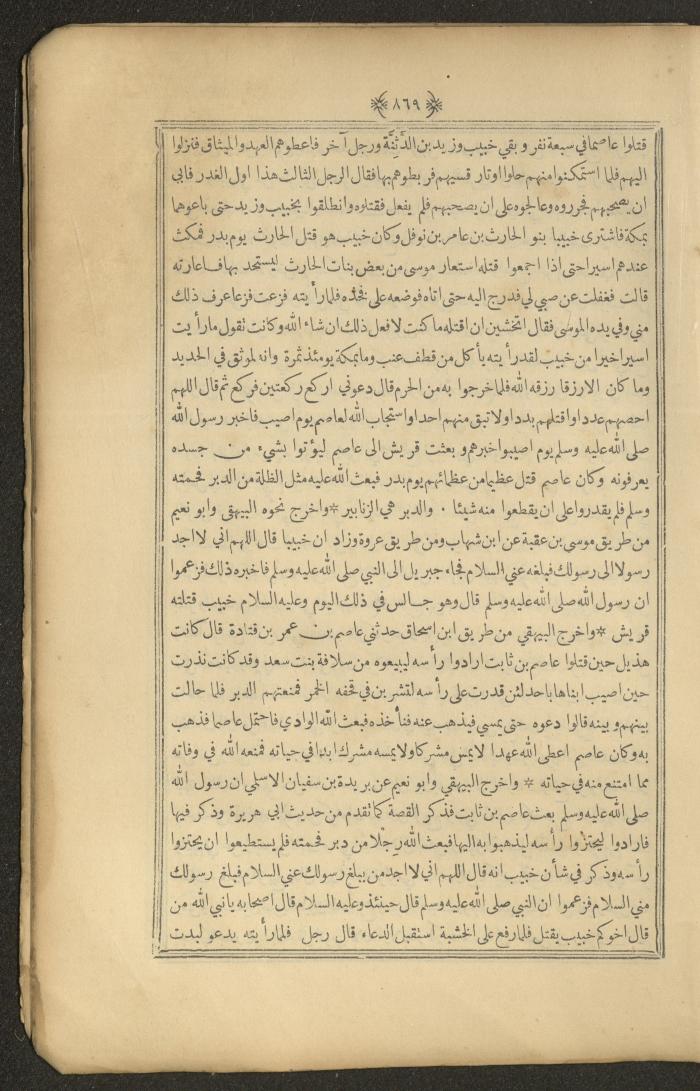 ٨٦٩
قتلوا عاصما في سبعة نفر وبقي خبيب وزيد بن الدَّثِنَة ورجل آخر فاعطوهم العهد والميثاق فنزلوا
اليهم فلما استمكنوا منهم حلوا اوتار قسيهم فربطوهم بها فقال الرجل الثالث هذا اول الغدر فابى
ان يصحبهم فجرروه وعالجوه على ان يصحبهم فلم يفعل فقتلوه وانطلقوا بخبيب وزيد حتى باعوهما
بمكة فاشترى خبيبا بنو الحارث بن عامر بن نوفل وكان خبيب هو قتل الحارث يوم بدر فمكث
عندهم اسيرا حتى اذا اجمعوا قتله استعار موسى من بعض بنات الحارث ليستحد بها فاعارته
قالت فغفلت عن صبي لي فدرج اليه حتى اتاه فوضعه على فخذه فلما رأيته فزعت فزعا عرف ذلك
مني وفي يده الموسى فقال اتخشين ان اقتله ما كنت لافعل ذلك ان شاء الله وكانت تقول ما رأيت
اسيرا خيرا من خبيب لقد رأيته يأكل من قطف عنب وما بمكة يومئذ ثمرة وانه لموثق في الحديد
وما كان الا رزقا رزقه الله فلما خرجوا به من الحرم قال دعوني اركع ركعتين فركع ثم قال اللهم
احصهم عددا واقتلهم بددا ولا تبق منهم احدا واستجاب الله لعاصم يوم اصيب فاخبر رسول الله
صلى الله عليه وسلم يوم اصيبوا خبرهم وبعثت قريش الى عاصم ليؤتوا بشيء من جسده
يعرفونه وكان عاصم قتل عظيما من عظائهم يوم بدر فبعث الله عليه مثل الظلة من الدبر فحمته
وسلم فلم يقدروا على ان يقطعوا منه شيئا ٠ والدبر هي الزنابير * واخرج نحوه البيهقي وابو نعيم
من طريق موسى بن عقبة عن ابن شهاب ومن طريق عروة وزاد ان خبيبا قال اللهم اني لا اجد
رسولا الى رسولك فبلغه عني السلام فجاء جبريل الى النبي صلى الله عليه وسلم فاخبره ذلك فزعموا
ان رسول الله صلى الله عليه وسلم قال وهو جالس في ذلك اليوم وعليه السلام خبيب قتلته
قريش * واخرج البيهقي من طريق ابن اسحاق حدثني عاصم بن عمر بن قتادة قال كانت
هذيل حين قتلوا عاصم بن ثابت ارادوا رأسه ليبيعوه من سلافة بنت سعد وقد كانت نذرت
حين اصيب ابناها باحد لئن قدرت على رأسه لتشربن في قحفه الخمر فمنعتهم الدبر فلما حالت
بينهم وبينه قالوا دعوه حتى يمسي فيذهب عنه فنأخذه فبعث الله الوادي فاحتمل عاصما فذهب
به وكان عاصم اعطى الله عهدا لا يمس مشركا ولا يمسه مشرك ابدا في حياته فمنعه الله في وفاته
مما امتنع منه في حياته * واخرج البيهقي وابو نعيم عن بريدة بن سفيان الاسلمي ان رسول الله
صلى الله عليه وسلم بعث عاصم بن ثابت فذكر القصة كما تقدم من حديث ابي هريرة وذكر فيها
فارادوا ليحتزوا رأسه ليذهبوا به اليها فبعث الله رِجْلا من دبر فحمته فلم يستطيعوا ان يحتزوا
رأسه وذكر في شأن خبيب انه قال اللهم اني لا اجد من يبلغ رسولك عني السلام فبلغ رسولك
مني السلام فزعموا ان النبي صلى الله عليه وسلم قال حينئذ وعليه السلام قال اصحابه يا نبي الله من
قال اخوكم خبيب يقتل فلما رفع على الخشبة استقبل الدعاء قال رجل فلما رأيته يدعو لبدت